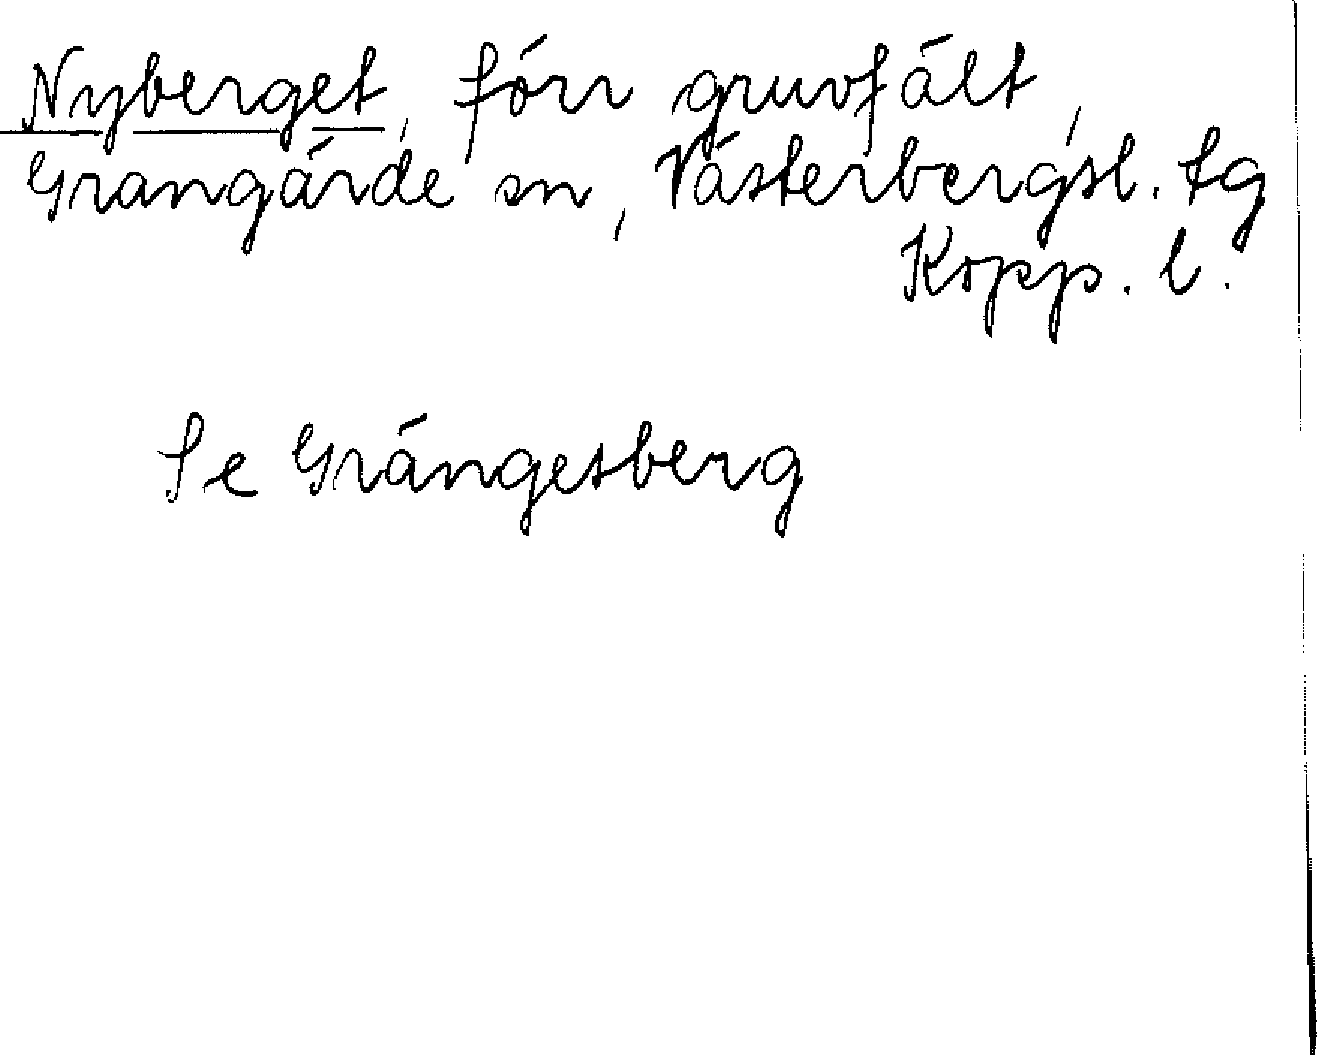 Nyberget, förr gruvfält,
Grangärde sn, Västerbergsl. tg
Kopp. l.
Se Grängesberg